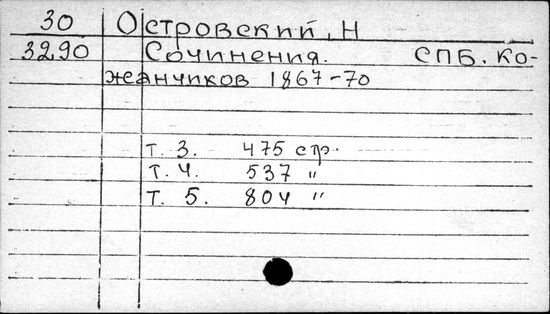 30 Островский, Н
3290 Сочинения. СПБ. Ко-
жанчиков 1867-70
т. 3. 475 стр.
т. 4. 537 "
т. 5. 804 "